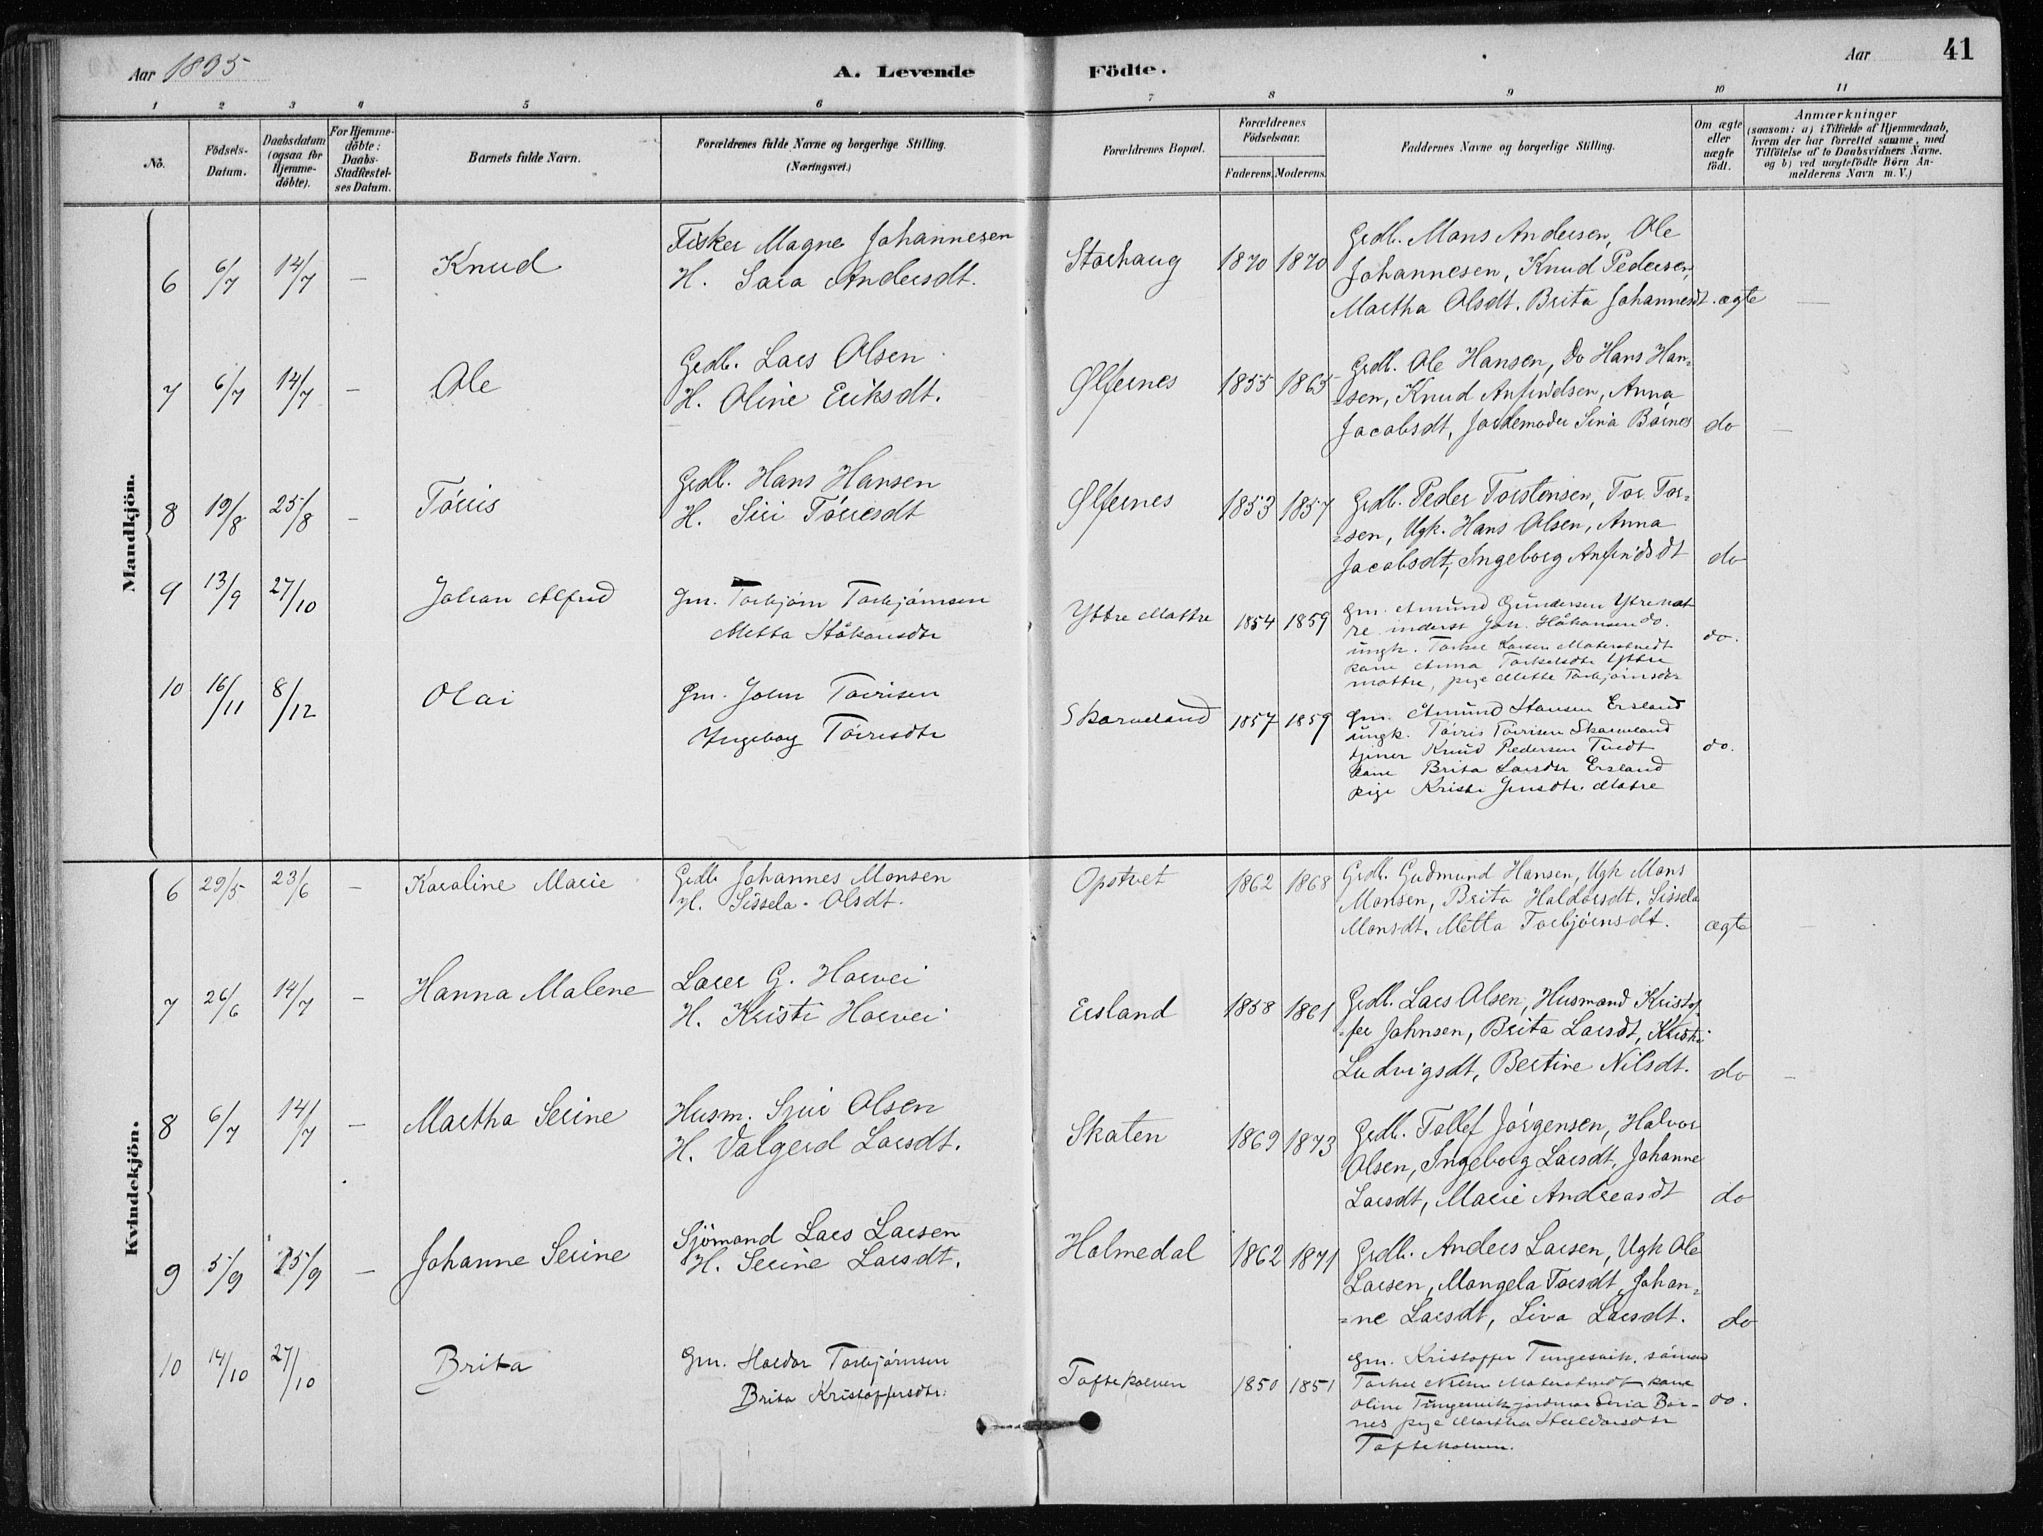 Aar 1895
A. Levende
Födte.
Aar
41
1 2 3 4 5 6 7 8 9 10 11
No.
Födsels-Datum.
Daabsdatum (ogsaa for Hjemme-döbte).
For Hjemme-döbte: Daabs-Stadfæstel-ses Datum.
Barnets fulde Navn.
Forældrenes fulde Navne og borgerlige Stilling.
(Næringsvei.)
Forældrenes Bopæl.
Forældrenes Födselsaar.
Faderens. Moderens.
Faddernes Navne og borgerlige Stilling.
Om ægte eller uægte födt.
Anmærkninger
(saasom: a) i Tilfælde af Hjemmedaab, hvem der har forrettet samme, med Tilföielse af to Daabsvidners Navne. og b) ved uægtefödte Börn Anmelderens Navn m. V.)
Mandkjön.
6 6/7 14/7 — Knud
Fisker Magne Johannesen
H. Sara Andersdt.
Storhaug 1870 1870
Grdb. Mons Andersen, Ole
Johannesen, Knud Pedersen,
Martha Olsdt. Brita Johannesdt. ægte —
7 6/7 14/7 — Ole
Grdb. Lars Olsen
H. Oline Eriksdt.
Ølfernes 1855 1865
Grdb. Ole Hansen, Do Hans Han-
sen, Knud Anfindsen, Anna
Jacobsdt, Jordemoder Siria Börnes do —
8 19/8 25/8 — Törris
Grdb. Hans Hansen
H. Siri Törresdt
Ølfernes 1853 1857
Grdb. Peder Torstensen, Tor Tor-
=sen, Ugk. Hans Olsen, Anna
Jacobsdt, Ingeborg Anfindsdt do
9 13/9 27/10 Johan Alfred
Gm. Torbjörn Torbjörnsen
Metta Håkonsdtr
Yttre Mattre 1854 1859
Gm. Amund Gundersen Ytre Mat
re inderst Joh. Håkonsen do.
ungk. Torkel Larsen
kone Anna Torkelsdtr Yttre
mattre, pige Mette Torbjörnsdtr
do.
10 16/11 8/12 Olai
Gm. John Toirisen
Ingeborg Toiresdtr
Skarveland 1857 1859
Gm. Amund Hansen Ersland
ungk. Toiris Toirisen Skarveland
tjener Knud Pedersen Tvedt
kone Brita Larsdtr Ersland
pige Kristi Jensdtr. Matre
do.
Kvindekjön.
6 29/5 23/6 — Karoline Marie
Grdb Johannes Monsen
H. Sissela Olsdt.
Opstvet 1862 1868
Grdb. Gudmund Hansen, Ugk Mons
Monsen, Brita Haldorsdt, Sissela
Monsdt, Metta Torbjörnsdt. ægte
7 26/6 14/7 — Hanna Malene
Lærer G. Horvei
H. Kristi Horvei
Ersland 1858 1861
Grdb. Lars Olsen, Husmand Kristof-
=fer Johnsen, Brita Larsdt, Kristi
Ludvigsdt, Bertine Nilsdt. do —
8 6/7 14/7 — Martha Serine
Husm. Sjur Olsen
H. Valgerd Larsdt.
Skaten 1869 1873
Grdb. Tollef Jörgensen, Halvor
Olsen, Ingeborg Larsdt, Johanne
Larsdt, Marie Andreasdt do
9 5/9 15/9 — Johanne Serine
Sjömand Lars Larsen
H. Serine Larsdt.
Holmedal 1862 1871
Grdb. Anders Larsen, Ugk Ole
Larsen, Mangela Torsdt, Johan-
=ne Larsdt, Siva Larsdt. do
10 14/10 27/10 Brita
Gm. Haldor Torbjörnsen
Brita Kristoffersdtr.
Toftekalven 1850 1851
Gm. Kristoffer Tungesvik, sömand
Torkel kone
Oline Tungesvik jordmor Seria Bör-
nes pige Martha Haldorsdtr
Toftekalven.
do.